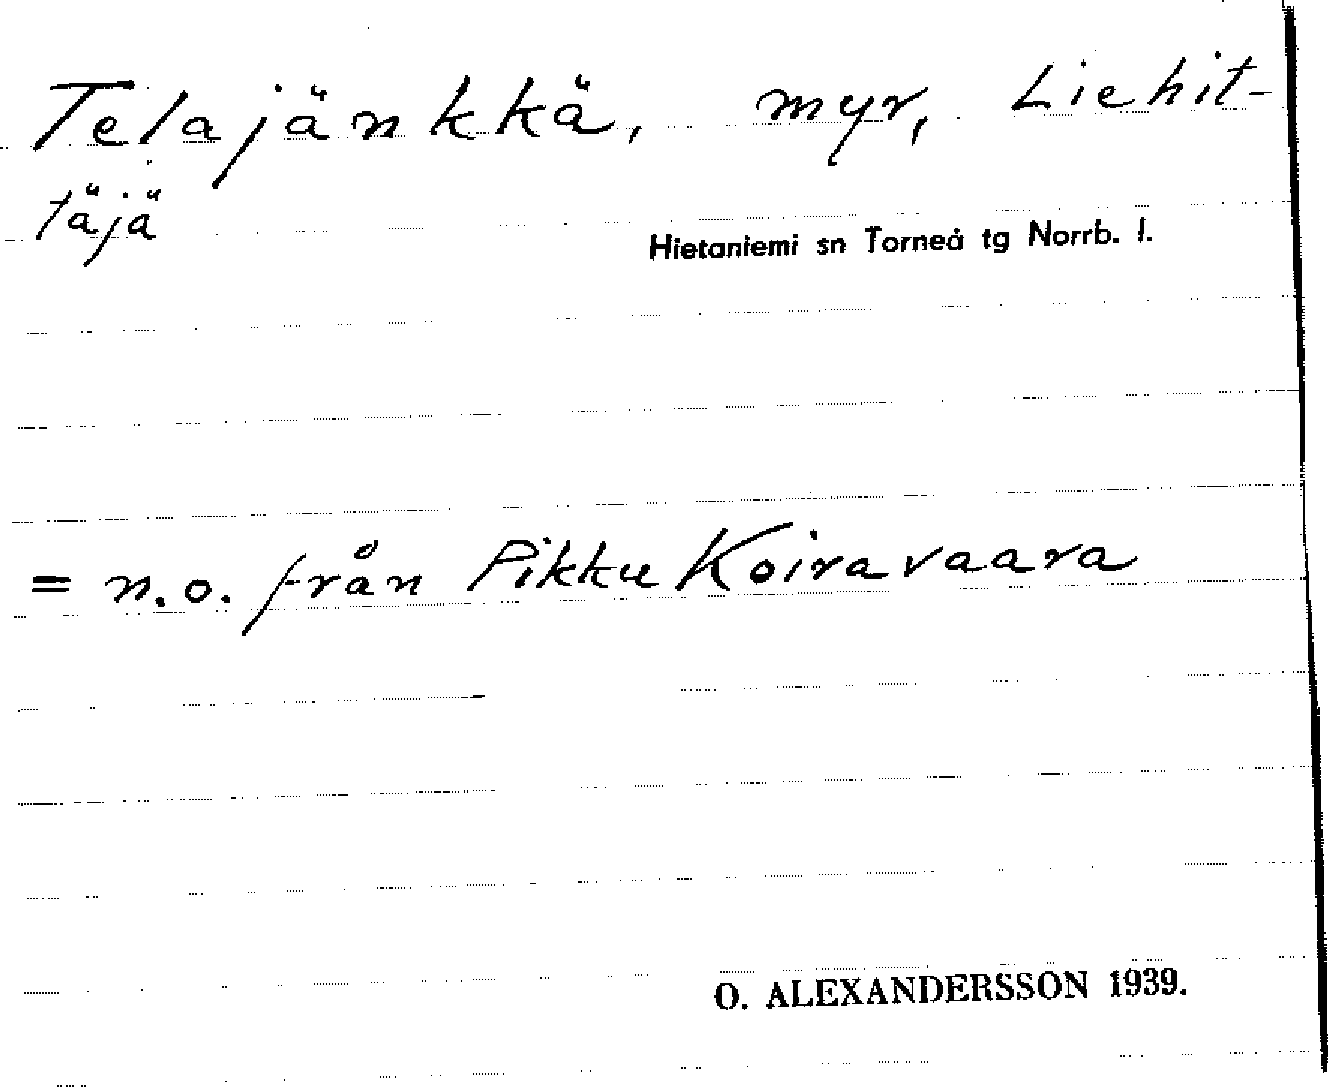 Telajänkkä, myr, Liehit-
täjä
Hietaniemi sn Torneå tg Norrb. l.
= n.o. från Pikku Koiravaara
O. ALEXANDERSSON 1939.